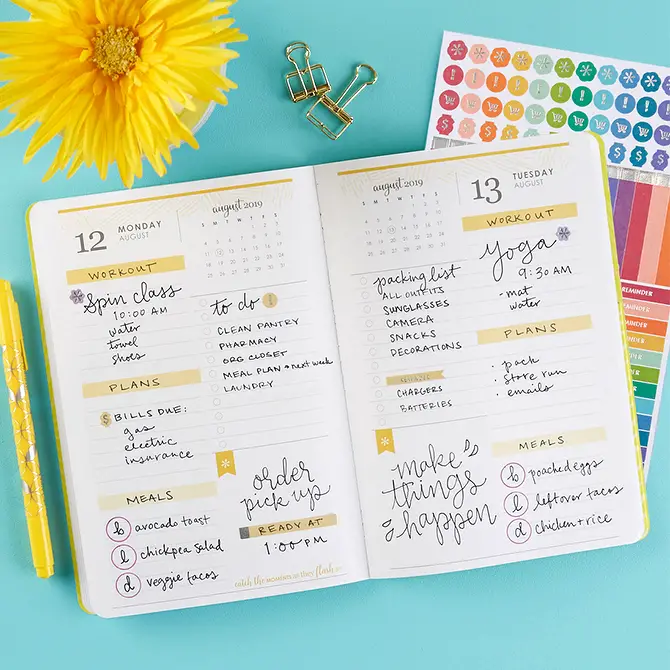 12
MONDAY
AUGUST
august 2019
S M T W T F S
WORKOUT
Spin class
10:00 AM
water
towel
shoes
PLANS
$ BILLS DUE:
gas
electric
insurance
MEALS
b avocado toast
l chickpea salad
d veggie tacos
to do !
CLEAN PANTRY
PHARMACY
ORG CLOSET
MEAL PLAN → next week
LAUNDRY
order
pick up
READY AT
1:00 PM
catch the MOMENTS as they flash by
august 2019
S M T W T F S
13
TUESDAY
AUGUST
packing list
ALL OUTFITS
SUNGLASSES
CAMERA
SNACKS
DECORATIONS
CHARGERS
BATTERIES
make
things
happen
WORKOUT
yoga
9:30 AM
- mat
water
PLANS
• pack
• store run
• emails
MEALS
b poached eggs
l leftover tacos
d chicken + rice
REMINDER
REMINDER
REMINDER